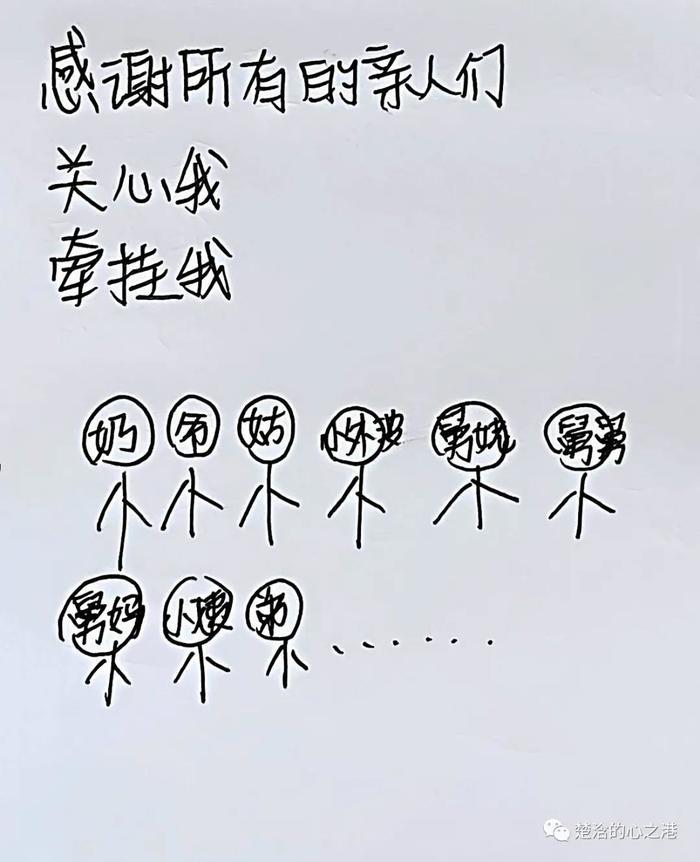 感谢所有的亲人们
关心我
牵挂我
奶 爷 姑 小外婆 舅姥 舅舅
舅妈 小 弟 ......
楚浛的心之港